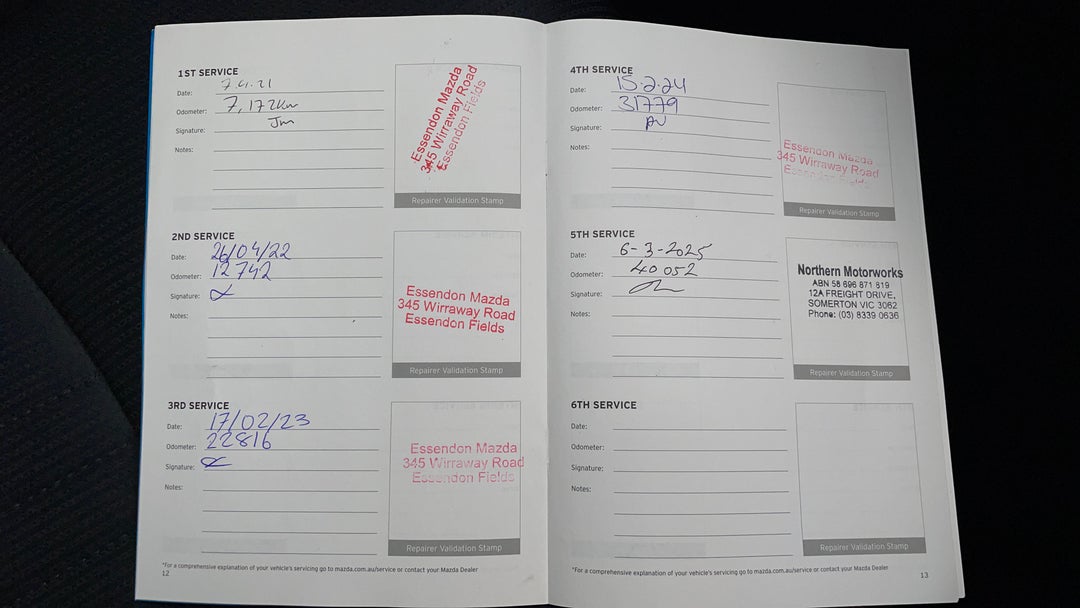 1ST SERVICE
Date:
Odometer: 7,172km
Signature: Jm
Notes:
Essendon Mazda
345 Wirraway Road
Essendon Fields
Repairer Validation Stamp
2ND SERVICE
Date: 26/04/22
Odometer: 12742
Signature:
Notes:
Essendon Mazda
345 Wirraway Road
Essendon Fields
Repairer Validation Stamp
3RD SERVICE
Date: 17/02/23
Odometer: 22816
Signature:
Notes:
Essendon Mazda
345 Wirraway Road
Essendon Fields
Repairer Validation Stamp
*For a comprehensive explanation of your vehicle's servicing go to mazda.com.au/service or contact your Mazda Dealer
12
4TH SERVICE
Date: 15.2.24
Odometer: 31779
Signature:
Notes:
Essendon Mazda
345 Wirraway Road
Essendon Fields
Repairer Validation Stamp
5TH SERVICE
Date: 6-3-2025
Odometer: 40052
Signature:
Notes:
Northern Motorworks
ABN 58 696 871 819
12A FREIGHT DRIVE,
SOMERTON VIC 3062
Phone: (03) 8339 0636
Repairer Validation Stamp
6TH SERVICE
Date:
Odometer:
Signature:
Notes:
Repairer Validation Stamp
*For a comprehensive explanation of your vehicle's servicing go to mazda.com.au/service or contact your Mazda Dealer
13